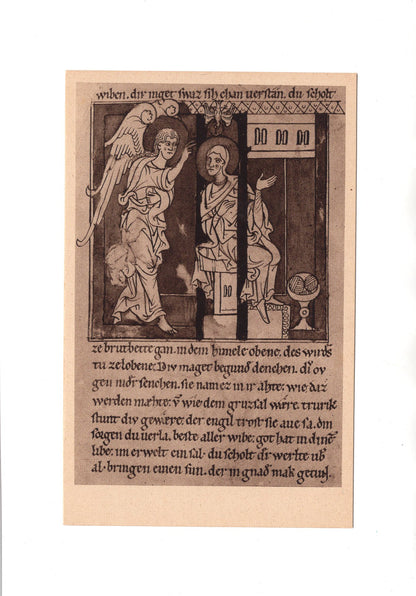 wiben. dir maget swaz sih chan uerstan. du scholt
ze brutbette gan. in dem himele obene. des wirdest
tu ze lobene. Div maget begund denchen. div ov
gen nider senchen. sie nam ez in ir ahte. wie daz
werden mæhte. vñ wie dem gruzsal wære. trurik
stunt div gewære. der engil trost sie aue sa. din
sorgen du uerla. beste aller wibe. got hat in dinem
libe. im erwelt ein sal. du scholt
al. bringen einen sun. der